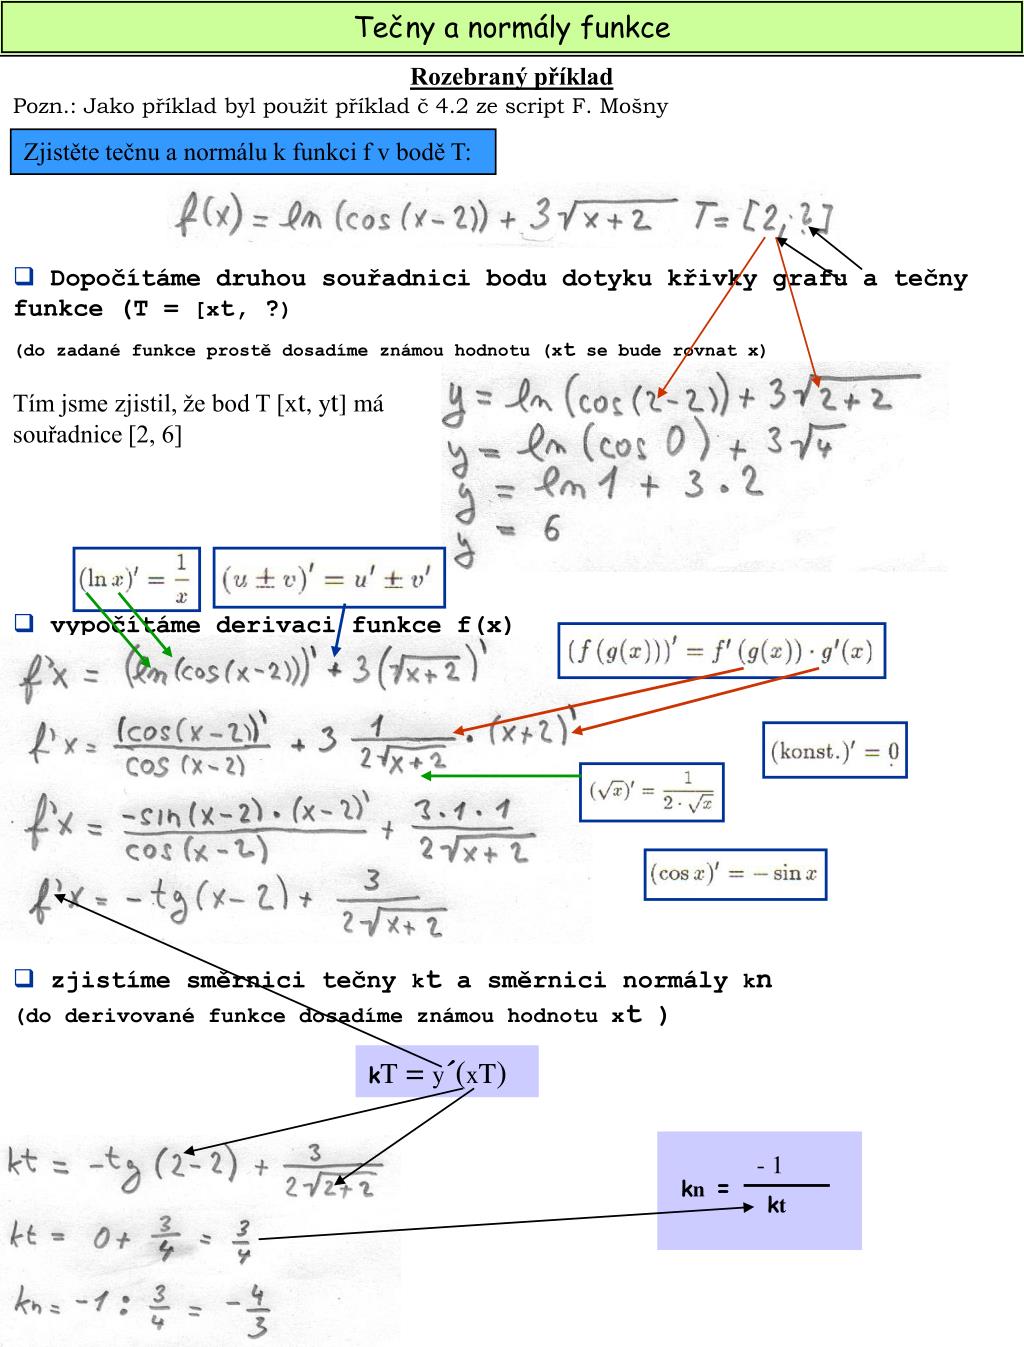 Tečny a normály funkce
Rozebraný příklad
Pozn.: Jako příklad byl použit příklad č 4.2 ze script F. Mošny
Zjistěte tečnu a normálu k funkci f v bodě T:
f(x) = ln (cos (x-2)) + 3√(x+2) T= [2, ?]
❑ Dopočítáme druhou souřadnici bodu dotyku křivky grafu a tečny
funkce (T = [xt, ?)
(do zadané funkce prostě dosadíme známou hodnotu (xt se bude rovnat x)
Tím jsme zjistil, že bod T [xt, yt] má
souřadnice [2, 6]
y = ln (cos (2-2)) + 3√(2+2)
y = ln (cos 0) + 3√4
y = ln 1 + 3 . 2
y = 6
(ln x)′ = 1/x
(u ± v)′ = u′ ± v′
❑ vypočítáme derivaci funkce f(x)
(f (g(x)))′ = f′ (g(x)) · g′(x)
f'x = (ln (cos (x-2)))' + 3 (√(x+2))'
f'x = (cos (x-2))' / cos (x-2) + 3 1 / 2√(x+2) . (x+2)'
(konst.)′ = 0
(√x)′ = 1 / 2 · √x
f'x = -sin (x-2) . (x-2)' / cos (x-2) + 3.1.1 / 2√(x+2)
(cos x)′ = − sin x
f'x = -tg (x-2) + 3 / 2√(x+2)
❑ zjistíme směrnici tečny kt a směrnici normály kn
(do derivované funkce dosadíme známou hodnotu xt )
kT = y´(xT)
kt = -tg (2-2) + 3 / 2√(2+2)
kn = - 1 / kt
kt = 0 + 3/4 = 3/4
kn = -1 : 3/4 = - 4/3